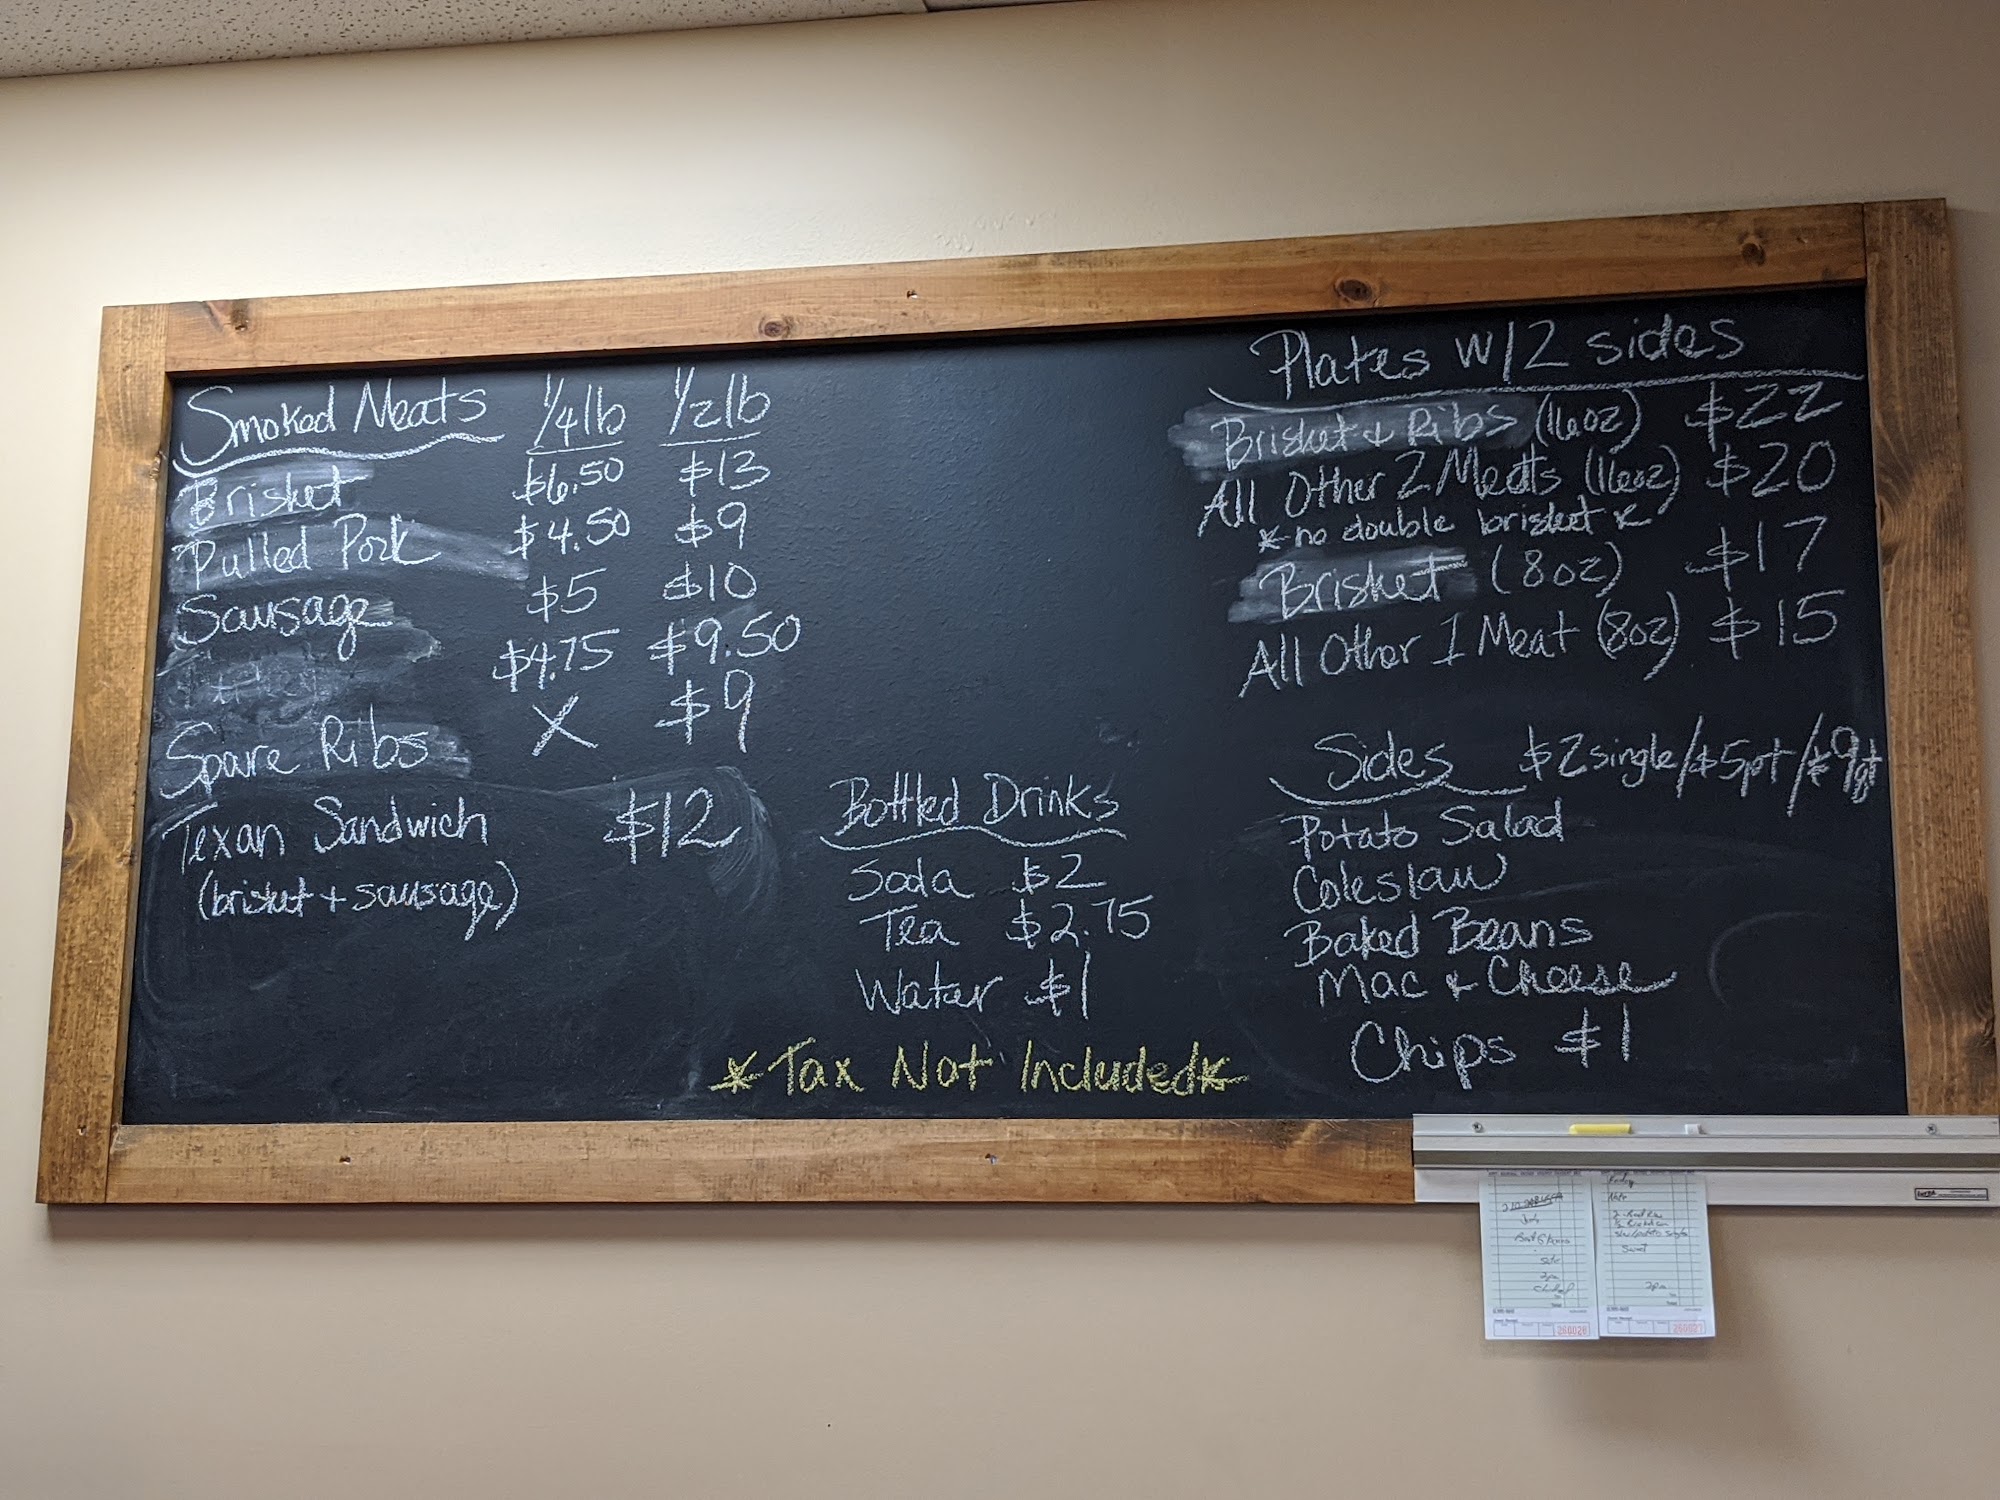 Smoked Meats 1/4lb 1/2lb
Brisket $6.50 $13
Pulled Pork $4.50 $9
Sausage $5 $10
$4.75 $9.50
Spare Ribs X $9
Texan Sandwich $12
(brisket + sausage)
Bottled Drinks
Soda $2
Tea $2.75
Water $1
*Tax Not Included*
Plates w/2 sides
Brisket & Ribs (16oz) $22
All Other 2 Meats (16oz) $20
*no double brisket*
Brisket (8oz) $17
All Other 1 Meat (8oz) $15
Sides $2 single/$5pt/$9qt
Potato Salad
Coleslaw
Baked Beans
Mac & Cheese
Chips $1
260026
260027